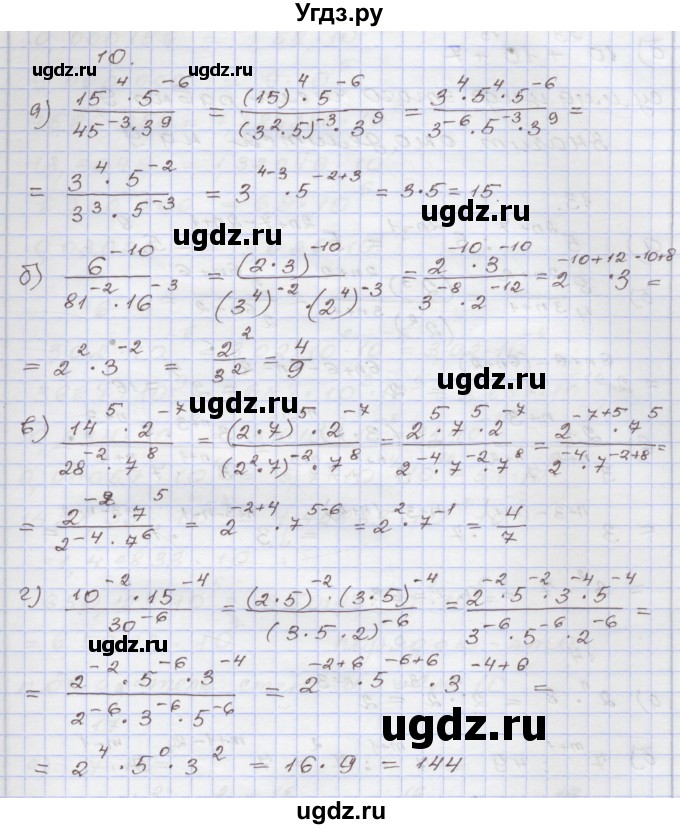 Угдз.ру
10.
ugdz.ru ugdz.ru
а) (15^4 · 5^-6)/(45^-3 · 3^9) = ((15)^4 · 5^-6)/((3^2·5)^-3 · 3^9) = (3^4 · 5^4 · 5^-6)/(3^-6 · 5^-3 · 3^9) =
= (3^4 · 5^-2)/(3^3 · 5^-3) = 3^(4-3) · 5^(-2+3) = 3·5 = 15.
ugdz.ru
ugdz.ru
б) 6^-10/(81^-2 · 16^-3) = (2·3)^-10/((3^4)^-2 · (2^4)^-3) = (2^-10 · 3^-10)/(3^-8 · 2^-12) = 2^(-10+12) · 3^(-10+8) =
= 2^2 · 3^-2 = 2^2/3^2 = 4/9
ugdz.ru
ugdz.ru
в) (14^5 · 2^-7)/(28^-2 · 7^8) = ((2·7)^5 · 2^-7)/((2^2·7)^-2 · 7^8) = (2^5 · 7^5 · 2^-7)/(2^-4 · 7^-2 · 7^8) = (2^(-7+5) · 7^5)/(2^-4 · 7^(-2+8)) =
= (2^-2 · 7^5)/(2^-4 · 7^6) = 2^(-2+4) · 7^(5-6) = 2^2 · 7^-1 = 4/7
ugdz.ru
г) (10^-2 · 15^-4)/30^-6 = ((2·5)^-2 · (3·5)^-4)/(3·5·2)^-6 = (2^-2 · 5^-2 · 3^-4 · 5^-4)/(3^-6 · 5^-6 · 2^-6) =
ugdz.ru
= (2^-2 · 5^-6 · 3^-4)/(2^-6 · 3^-6 · 5^-6) = 2^(-2+6) · 5^(-6+6) · 3^(-4+6) =
ugdz.ru
= 2^4 · 5^0 · 3^2 = 16 · 9 = 144
ugdz.ru